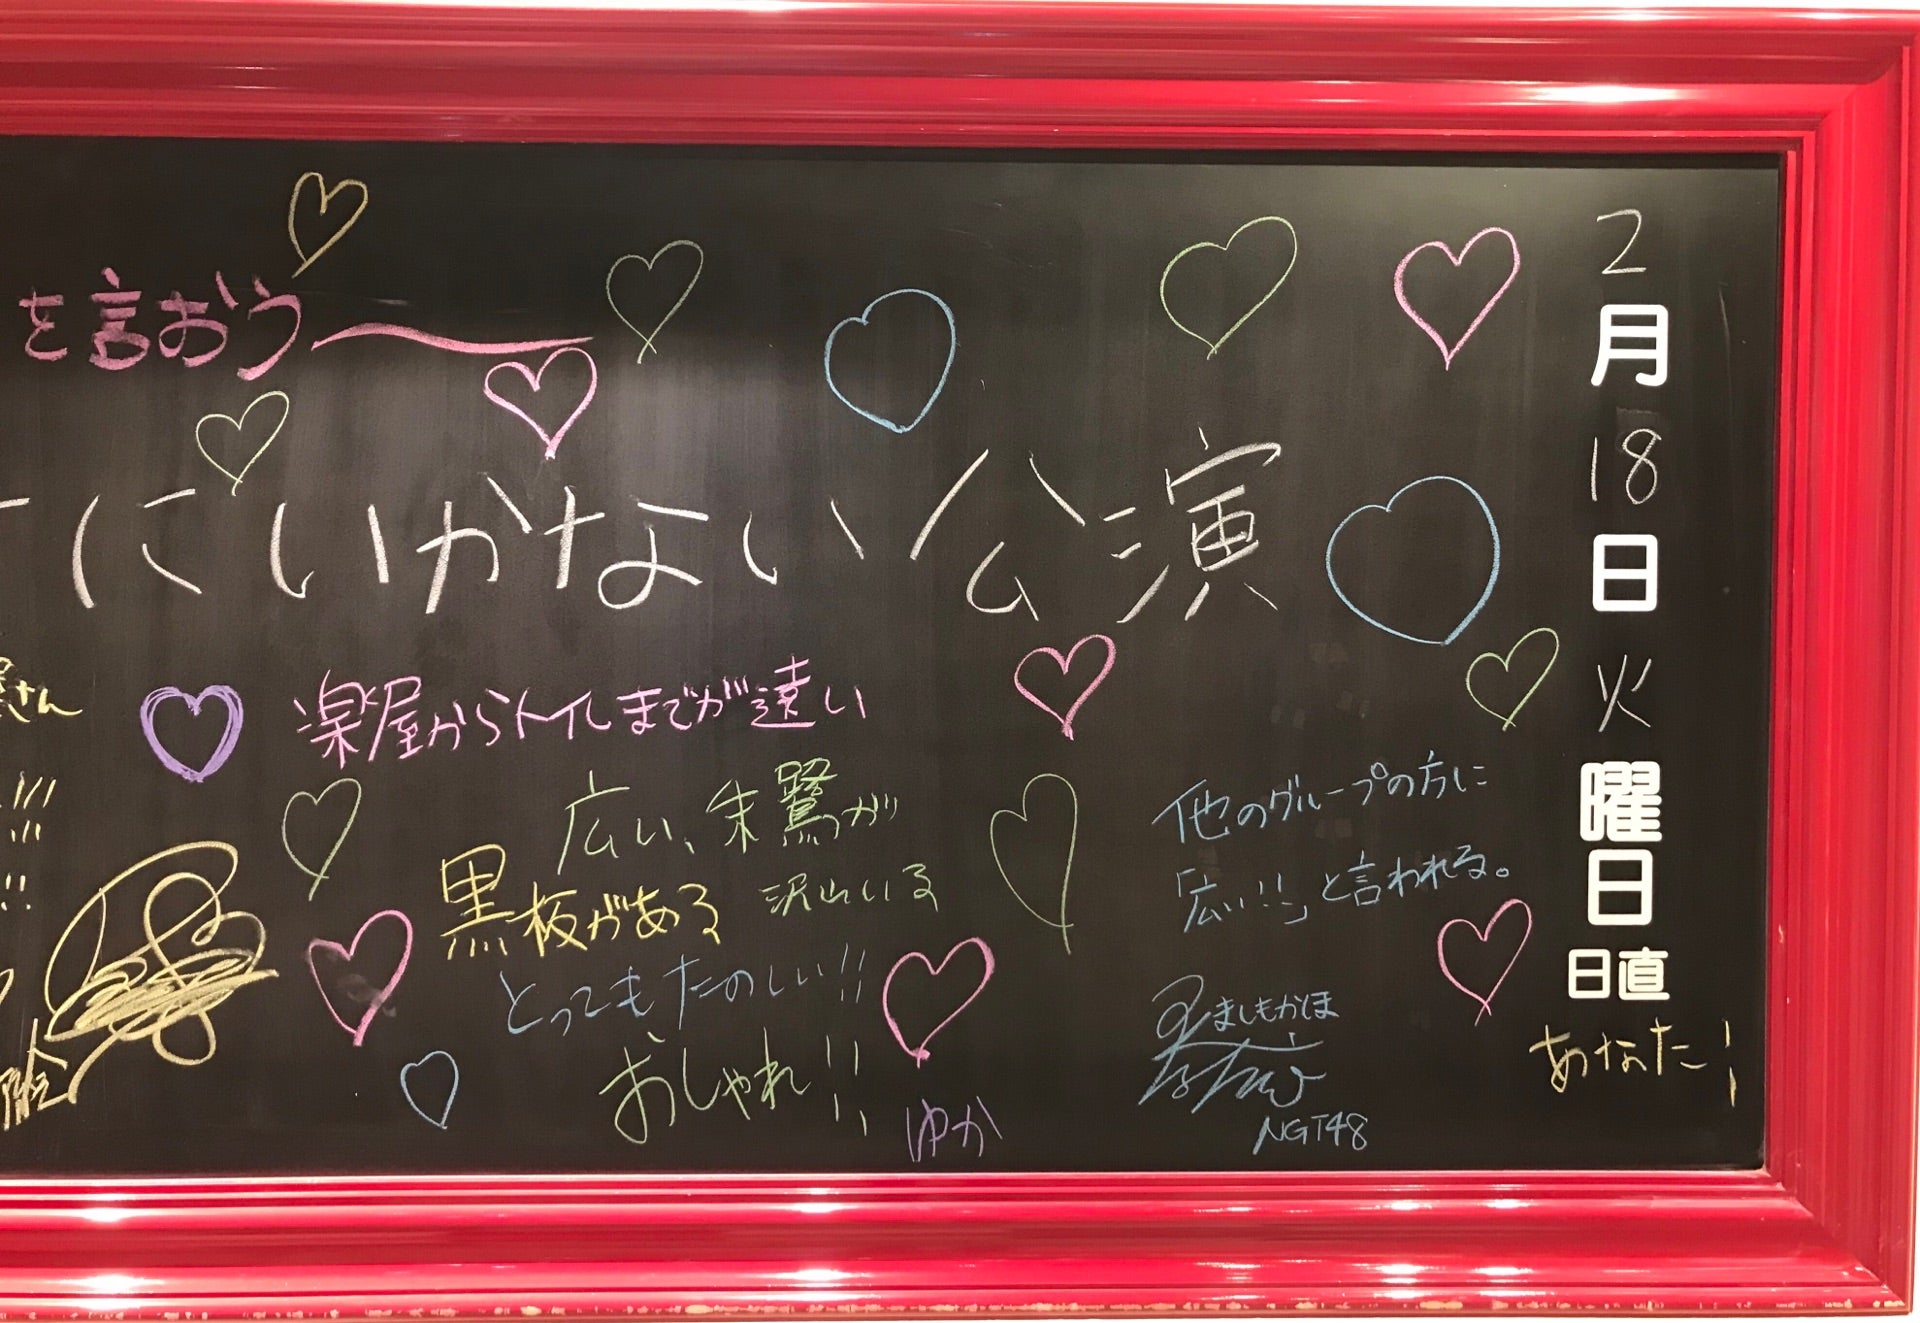 を言おう〜
にいかない公演
さん
楽屋からトイレまでが遠い
広い、朱鷺が
沢山いる
黒板がある
とってもたのしい!!
おしゃれ!!
ゆか
他のグループの方に
「広い!!」と言われる。
ましもかほ
NGT48
2
月
18
日
火
曜
日
日直
あなた!